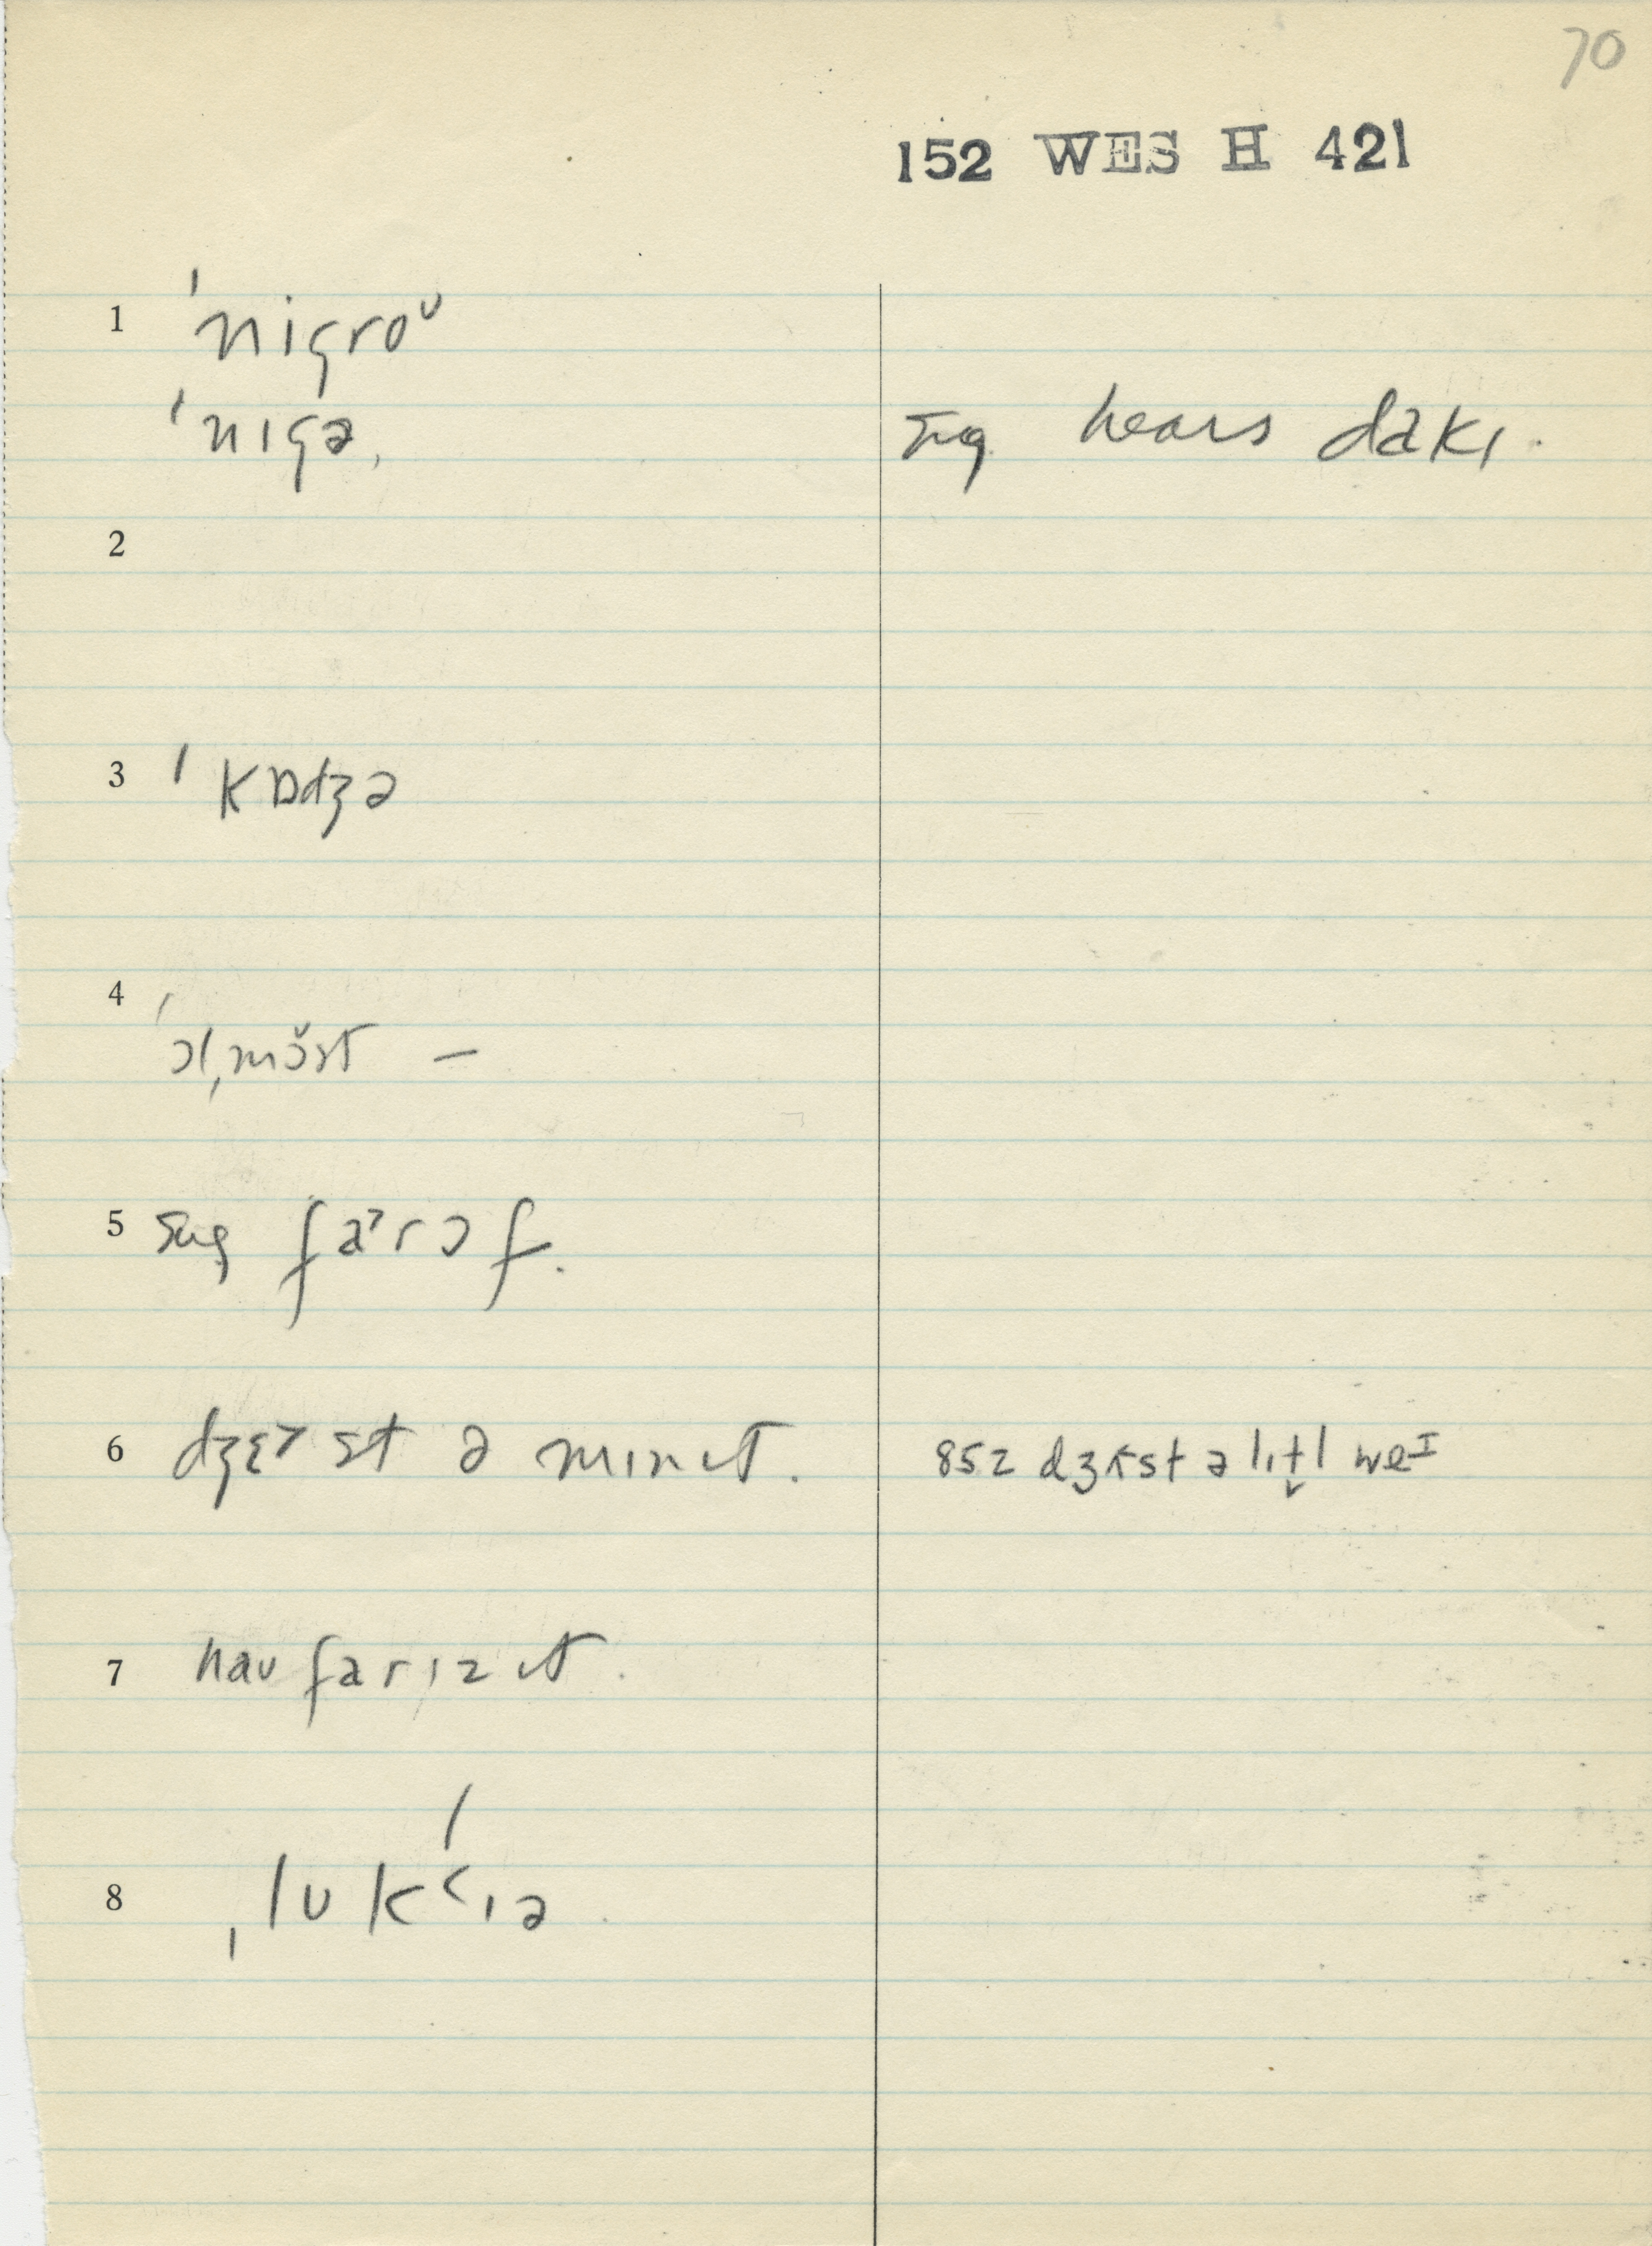 70
152 WES H 421
1 ˈnigroᴜ
ˈnɪgə, sug hears dakɪ.
2
3 ˈkɒdʒə
4 ˈɔlˌmɔ̆st –
5 sug fa˃rɔf.
6 dʒɛ˃st ə mɪnɪt. 852 dʒʌst ə lɪt̬l weɪ
7 haʊ farɪzɪt.
8 ˌlʊkˈ‹ɪə